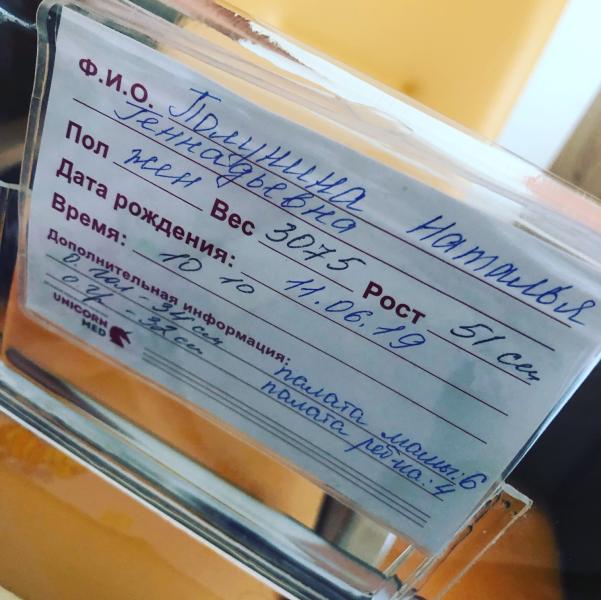 Ф.И.О. Полунина Наталья
Геннадьевна
Пол жен Вес 3075 Рост 51 см
Дата рождения: 11.06.19
Время: 10 10
Дополнительная информация:
о. гол - 34 см
о. гр - 33 см
палата мамы: 6
палата реб-ка: 4
UNICORN
MED